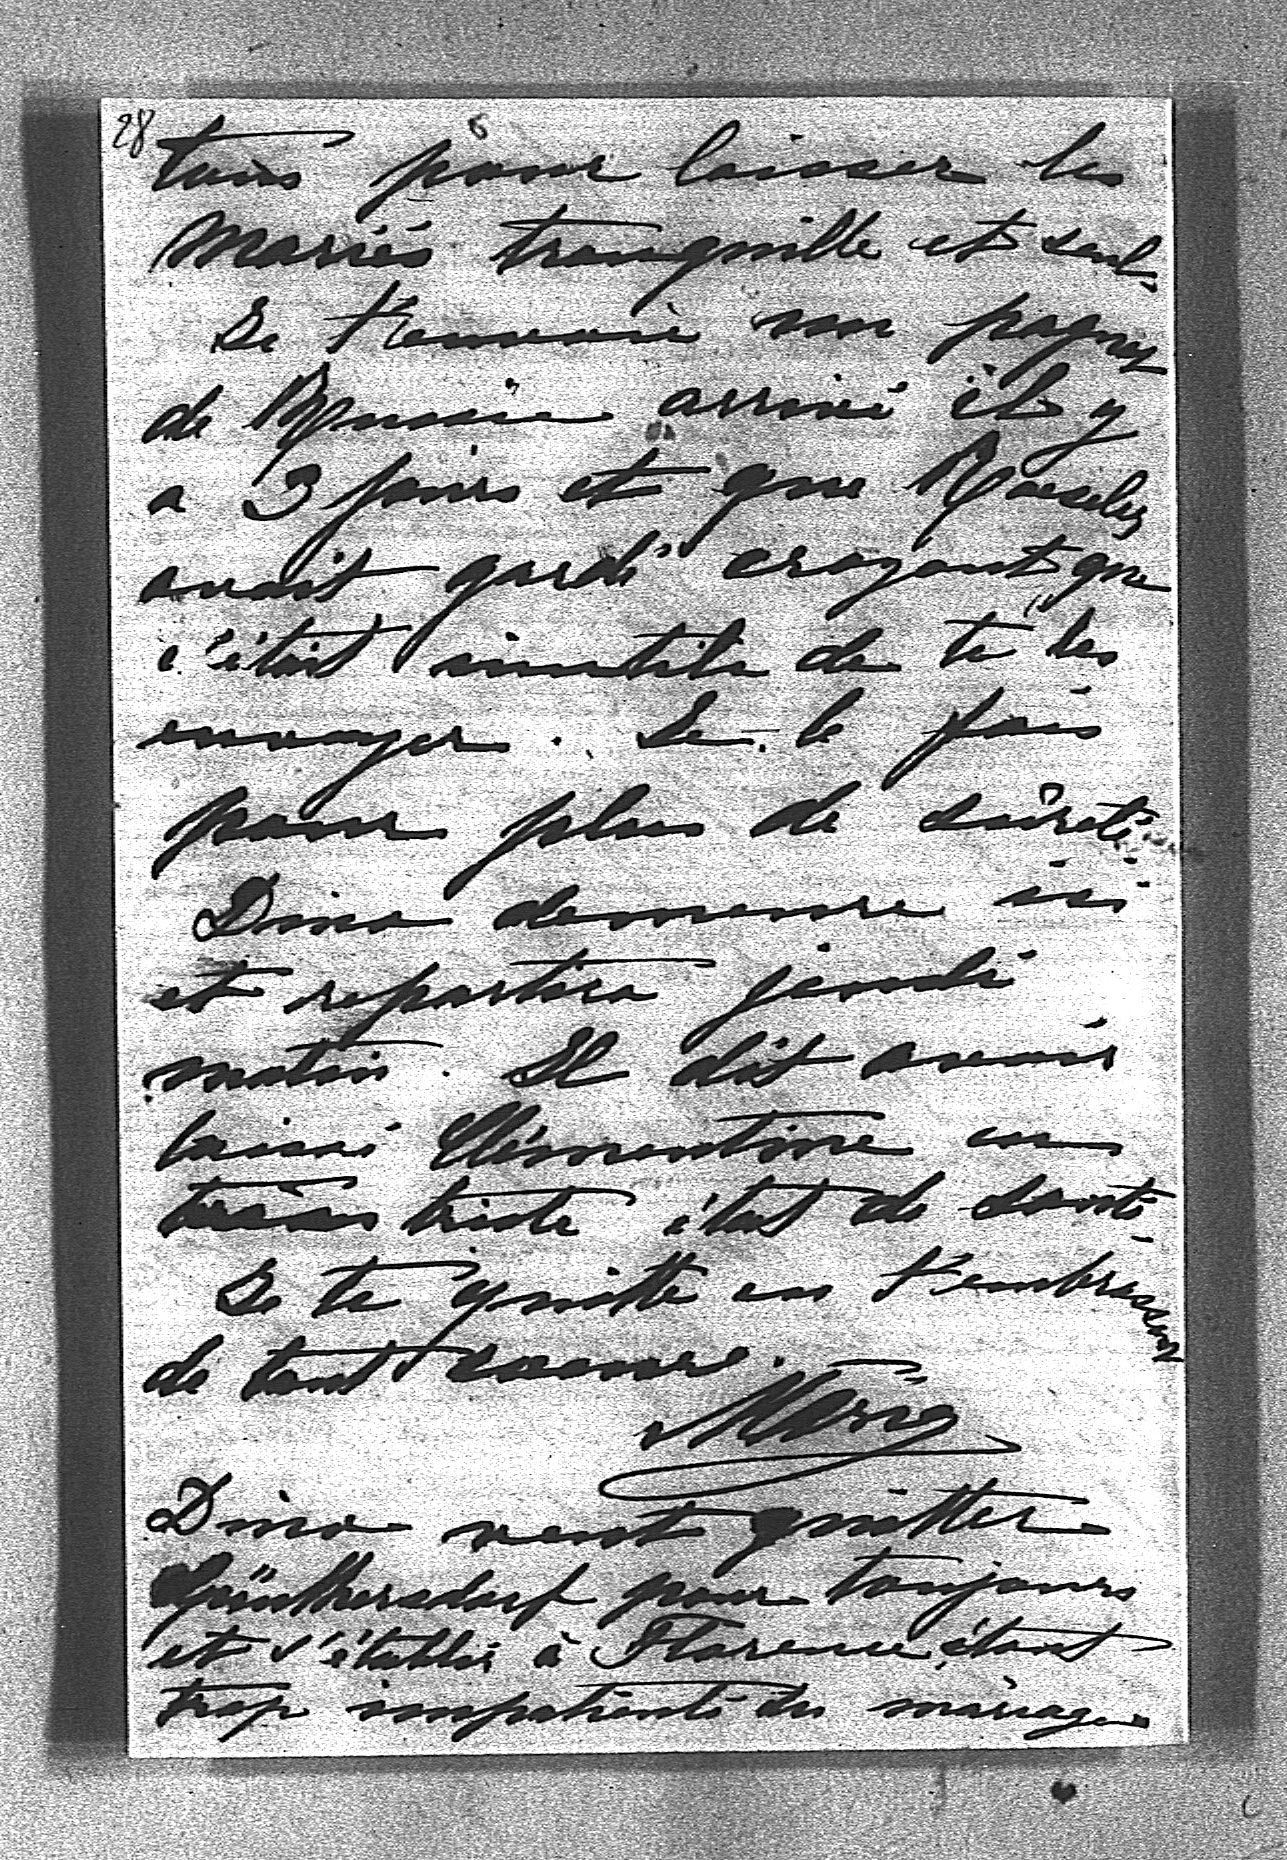 28
tous pour laisser les
mariés tranquille et seul
Je t'envoie un pagny
de Russie arrivé il y
a 3 jours et que Roeseler
avait gardé croyant que
c'était inutile de te les
envoyer. Je le fais
pour plus de sûreté
Dino demeure ici
et repartira jeudi
matin. Il dit avoir
laissé Clémentine en
très triste état de santé
Je te quitte en t'embrassant
de tout coeur.
Marie
Dino veut quitter
Günthersdorf pour toujours
et s'établir à Florence, étant
trop impatienté du mariage